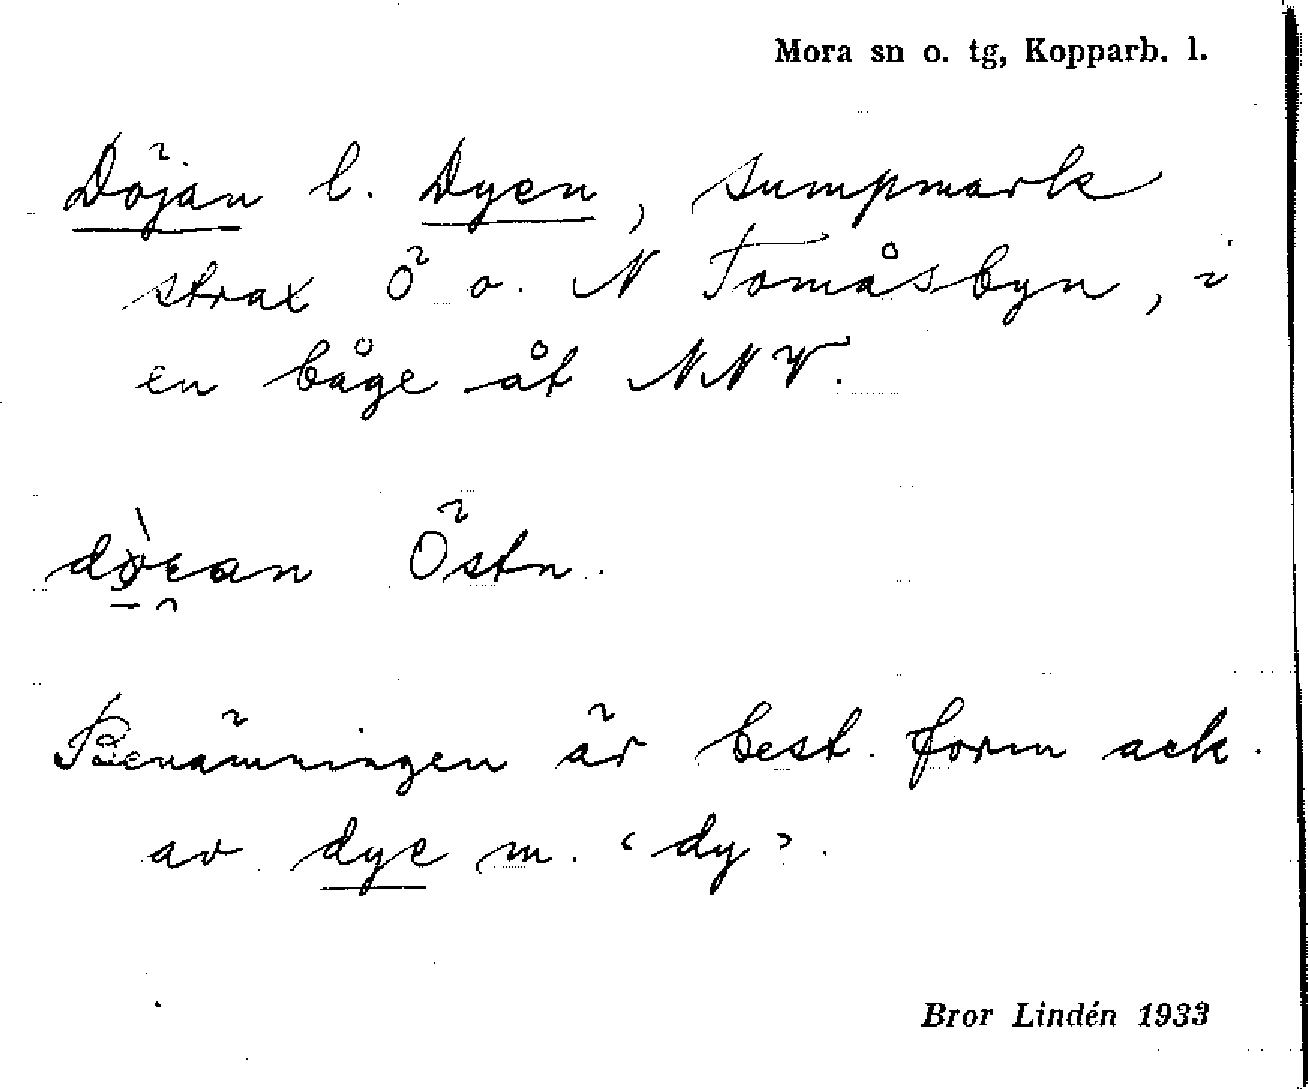 Mora sn o. tg, Kopparb. l.
Döjan l. Dyen, sumpmark
strax Ö o. N Tomåsbyn, i
en båge åt NNV.
Östn.
Benämningen är best. form ack.
av dye m. ‘dy’.
Bror Lindén 1933